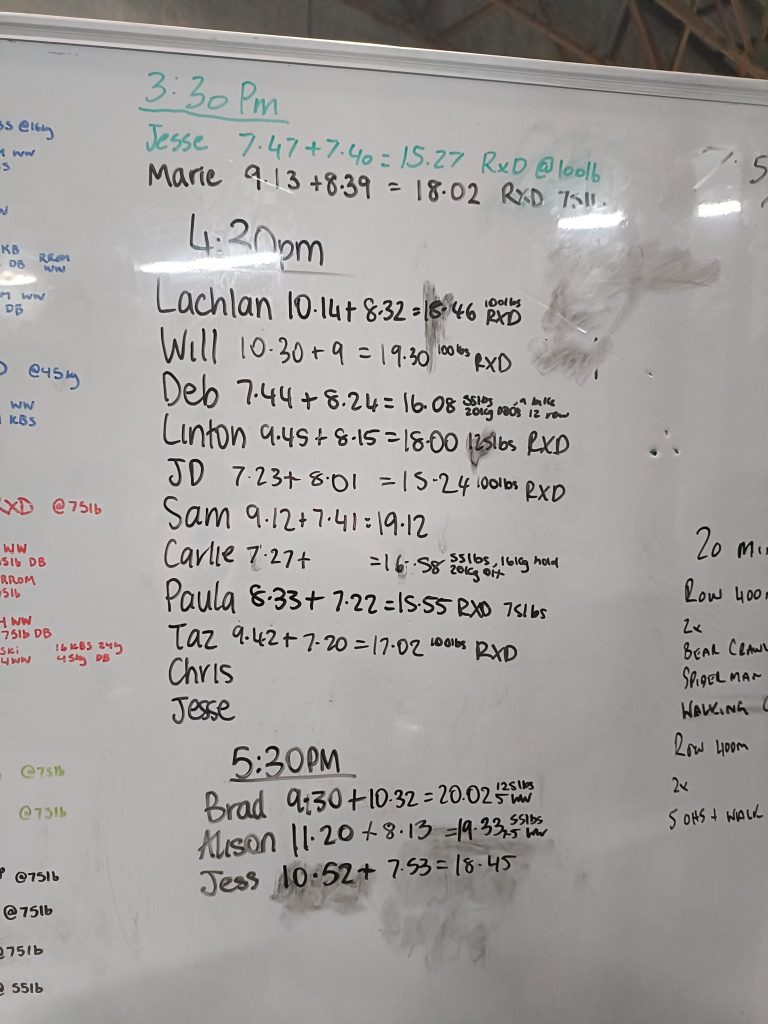 3:30 Pm
Jesse 7.47+7.40=15.27 RxD @100lb
Marie 9.13+8.39 = 18.02 RXD
4:30pm
Lachlan 10.14+8.32=18.46 100lbs RXD
Will 10.30+9 = 19.30 100lbs RXD
Deb 7.44+8.24=16.08 55lbs 20kg 12 row
Linton 9.45+8.15=18.00 125lbs RXD
JD 7.23+8.01 =15.24 100lbs RXD
Sam 9.12+7.41=19.12
Carlie 7.27+ =16.58 55lbs, 16kg hold 20kg
Paula 8.33+7.22=15.55 RXD 75lbs
Taz 9.42+7.20=17.02 100lbs RXD
Chris
Jesse
5:30PM
Brad 9:30+10.32=20.02 125lbs 5 WW
Alison 11.20+8.13 =19.33 55lbs 7.5 WW
Jess 10.52+ 7.53=18.45
@16kg
WW
KB
DB RROM WW
WW
DB
@45kg
WW
KBS
RXD @75lb
WW
DB
RROM
WW
75lb DB
SKI 16 KBS 24kg
WW 45kg DB
@75lb
@75lb
@75lb
@75lb
@75lb
55lb
20 Min
Row 400m
2x
BEAR CRAWL
SPIDERMAN
WALKING
Row 400m
2x
5 OHS + WALK